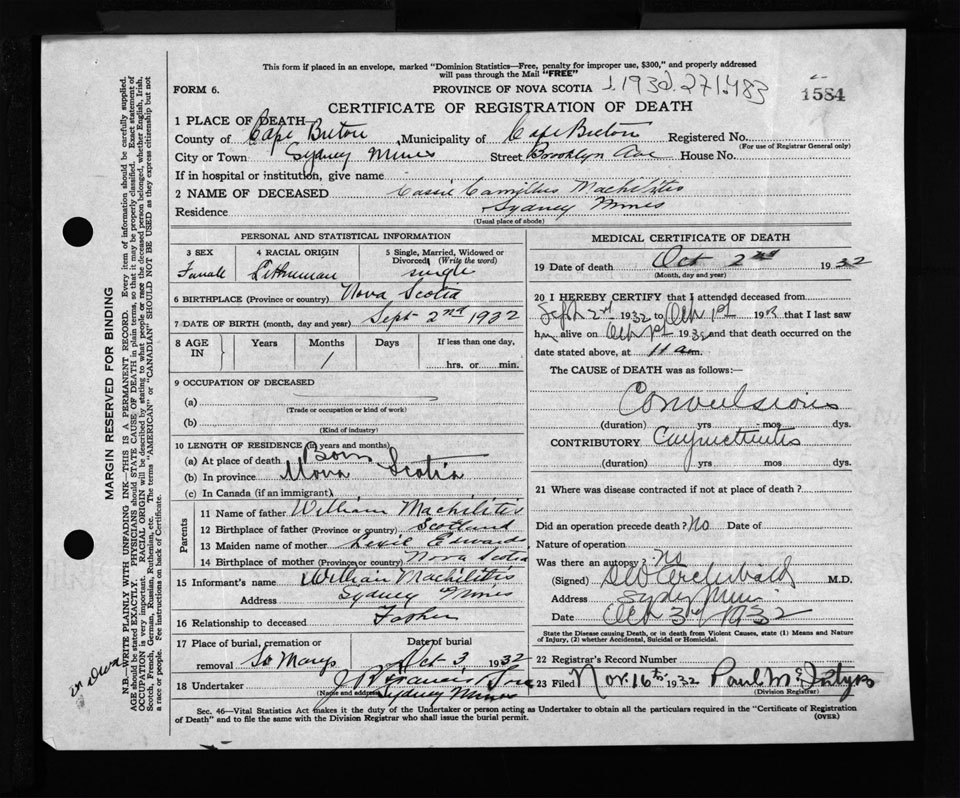 This form if placed in an envelope, marked "Dominion Statistics—Free, penalty for improper use, $300," and properly addressed
will pass through the Mail "FREE"
FORM 6.
PROVINCE OF NOVA SCOTIA 1932. 271483
1584
CERTIFICATE OF REGISTRATION OF DEATH
1 PLACE OF DEATH—
County of Cape Breton, Municipality of Cape Breton Registered No.
(For use of Registrar General only)
City or Town Sydney Mines Street Brooklyn Ave House No.
If in hospital or institution, give name
2 NAME OF DECEASED Cassie Machilitis
Residence Sydney Mines
(Usual place of abode)
PERSONAL AND STATISTICAL INFORMATION
3 SEX
4 RACIAL ORIGIN
5 Single, Married, Widowed or
Divorced (Write the word)
Female
single
6 BIRTHPLACE (Province or country) Nova Scotia
7 DATE OF BIRTH (month, day and year) Sept 2nd 1932
8 AGE
IN
Years Months Days If less than one day,
1
hrs. or min.
9 OCCUPATION OF DECEASED
(a)
(Trade or occupation or kind of work)
(b)
(Kind of industry)
10 LENGTH OF RESIDENCE (in years and months)
(a) At place of death Born
(b) In province Nova Scotia
(c) In Canada (if an immigrant)
Parents
11 Name of father William Machilitis
12 Birthplace of father (Province or country) Scotland
13 Maiden name of mother Edwards
14 Birthplace of mother (Province or country) Nova Scotia
15 Informant's name William Machilitis
Address Sydney Mines
16 Relationship to deceased Father
17 Place of burial, cremation or
removal St Marys
Date of burial
Oct 3 1932
18 Undertaker
(Name and address) Sydney Mines
MEDICAL CERTIFICATE OF DEATH
19 Date of death Oct 2nd 1932
(Month, day and year)
20 I HEREBY CERTIFY that I attended deceased from
Sept 2nd 1932 to Oct 1st 193 that I last saw
h alive on Oct 1st 1932 and that death occurred on
date stated above, at 11 a.m.
The CAUSE of DEATH was as follows:—
Convulsions
(duration) yrs mos dys.
CONTRIBUTORY
(duration) yrs mos dys.
21 Where was disease contracted if not at place of death?
Did an operation precede death? No Date of
Nature of operation
Was there an autopsy? No
(Signed) Archibald M.D.
Address Sydney Mines
Date Oct 3rd 1932
State the Disease causing Death, or in death from Violent Causes, state (1) Means and Nature
of Injury, (2) whether Accidental, Suicidal or Homicidal.
22 Registrar's Record Number
23 Filed Nov. 16th 1932 Paul McIntyre
(Division Registrar)
Sec. 46—Vital Statistics Act makes it the duty of the Undertaker or person acting as Undertaker to obtain all the particulars required in the "Certificate of Registration
of Death" and to file the same with the Division Registrar who shall issue the burial permit.
(OVER)
MARGIN RESERVED FOR BINDING
N.B.—WRITE PLAINLY WITH UNFADING INK—THIS IS A PERMANENT RECORD. Every item of information should be carefully supplied.
AGE should be stated EXACTLY. PHYSICIANS should STATE CAUSE OF DEATH in plain terms, so that it may be properly classified. Exact statement of
OCCUPATION is very important. RACIAL ORIGIN will be described by stating to what people or race the deceased person belonged, whether English, Irish,
Scotch, French, German, Russian, Ruthenian, etc. The terms "AMERICAN" or "CANADIAN" SHOULD NOT BE USED as they express citizenship but not
a race or people. See instructions on back of Certificate.